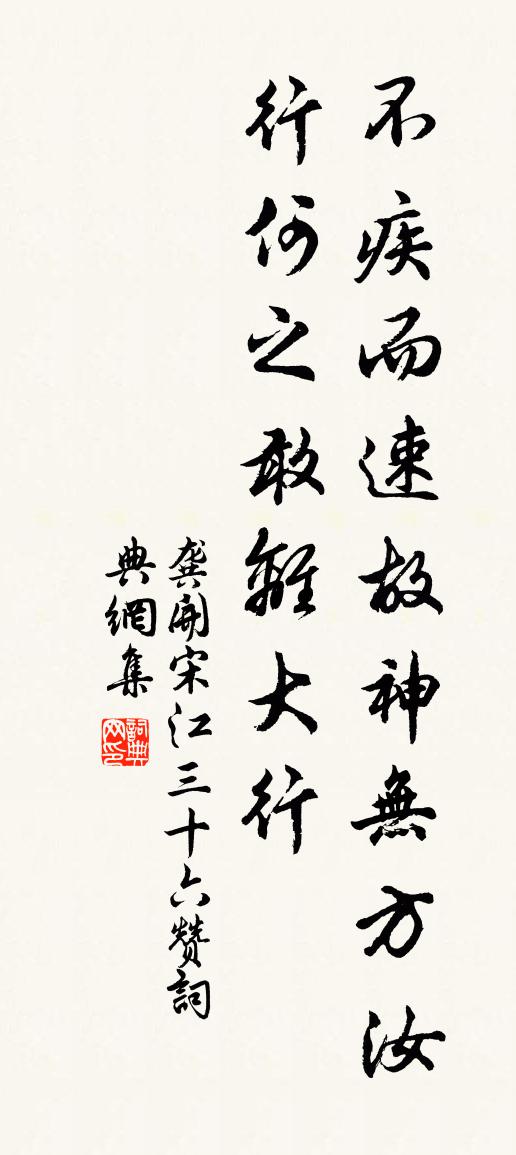 不疾而速故神無方汝
行何之敢離大行
龔開宋江三十六贊詞
典網集
詞典网印